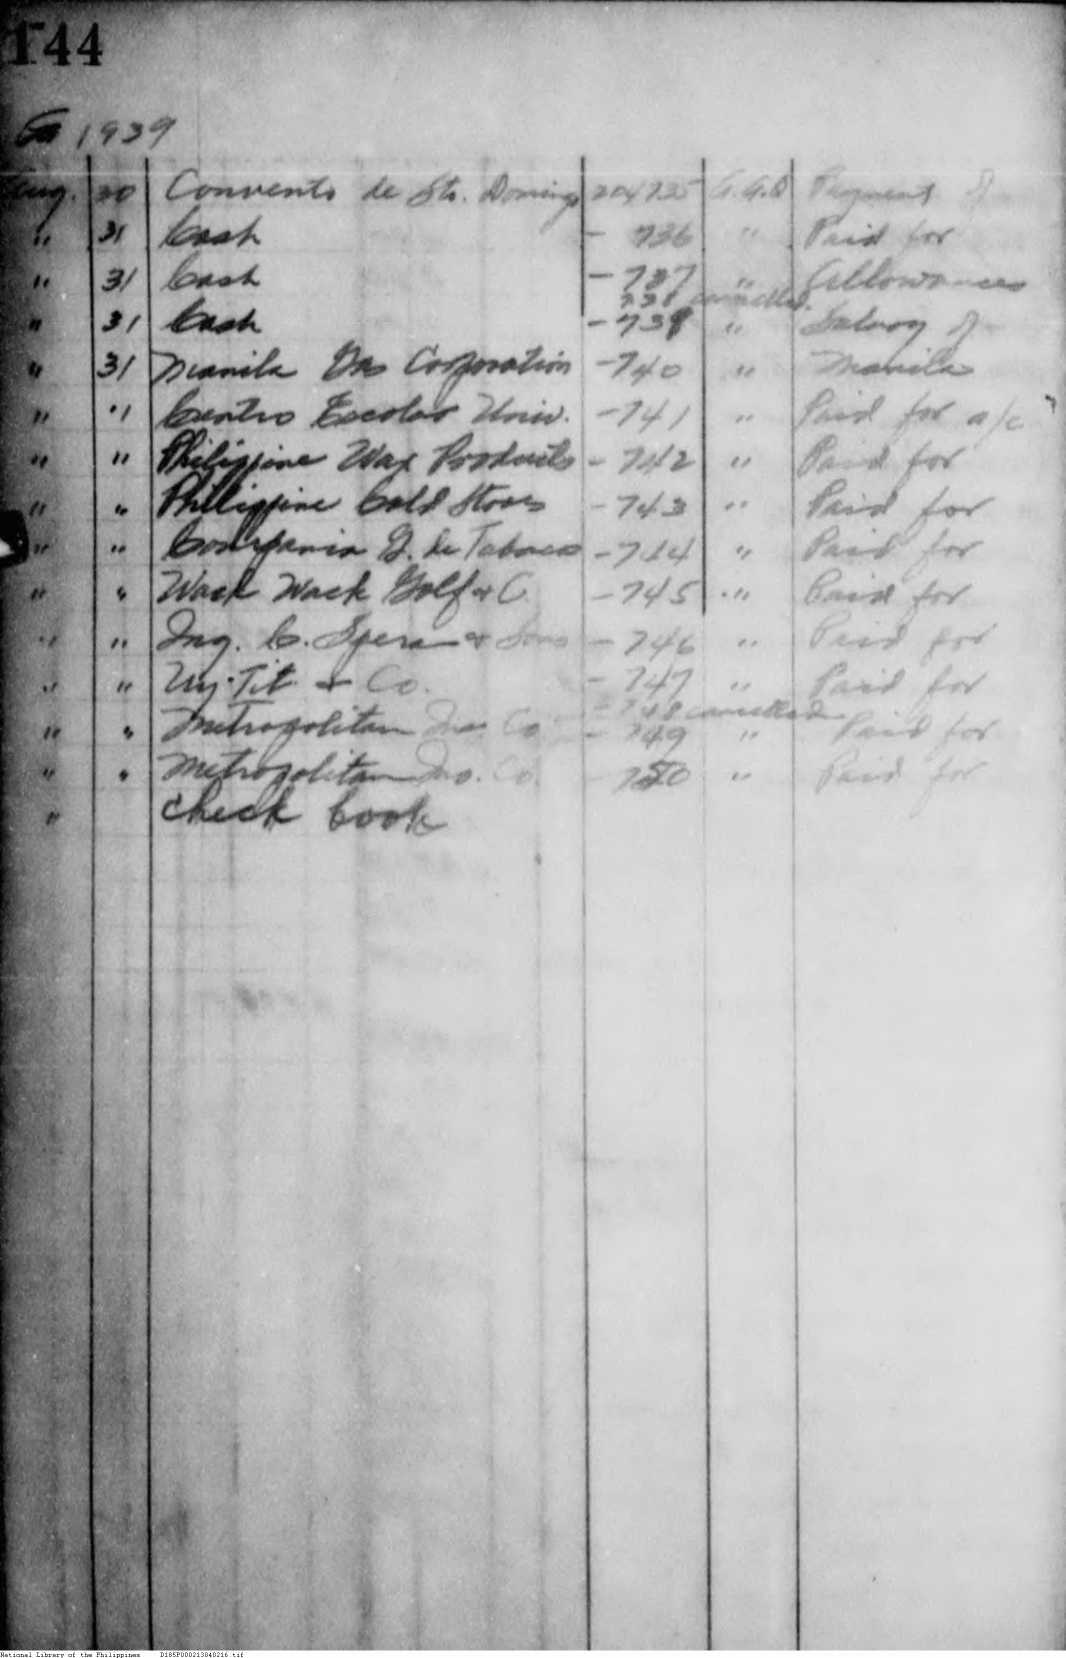 144
1939
Aug. 30 Convento de Sto. Domingo 204735 G.G.D Payment of
" 31 Cash - 736 " Paid for
" 31 Cash - 737 " Allowances
738 cancelled.
" 31 Cash - 739 " Salary of
" 31 Manila Gas Corporation - 740 " Manila
" " Centro Escolar Univ. - 741 " Paid for a/c
" " Philippine Wax Products - 742 " Paid for
" " Philippine Cold Stores - 743 " Paid for
" " Compania G. de Tabacos - 744 " Paid for
" " Wack Wack Golf & C. - 745 " Paid for
" " Ing. C. & Sons - 746 " Paid for
" " Uy-Tit & Co. - 747 " Paid for
- 748 cancelled
" " Metropolitan Ins Co - 749 " Paid for
" " Metropolitan Ins. Co. - 750 " Paid for
" check book
National Library of the Philippines D185P000213040216.tif